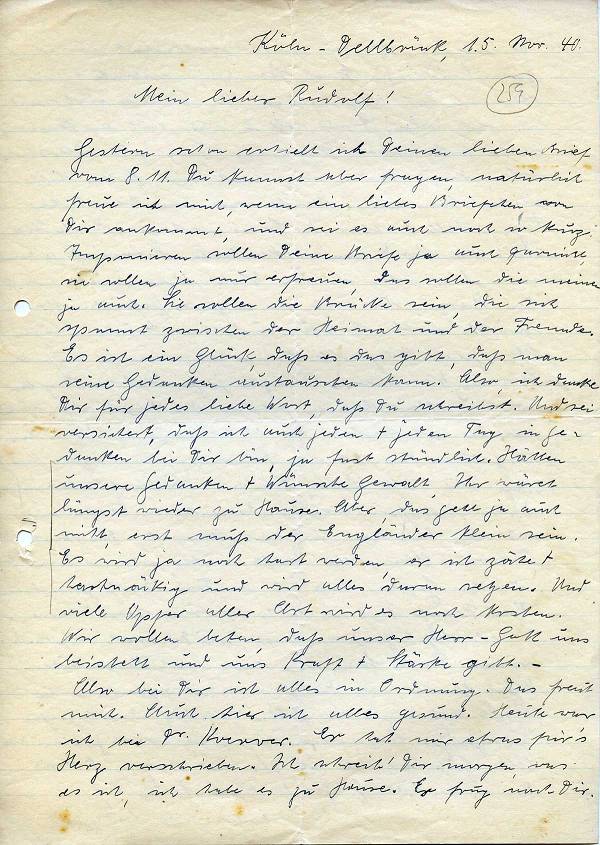 Köln-Dellbrück, 15. Nov. 40.
Mein lieber Rudolf!
259
Gestern schon erhielt ich Deinen lieben Brief
vom 8.11. Du kannst aber fragen, natürlich
freue ich mich, wenn ein liebes Briefchen von
Dir ankommt, und sei es auch noch so kurz.
Imponieren sollen Deine Briefe ja auch garnicht
sie sollen ja nur erfreuen, das sollen die meinen
ja auch. Sie sollen die Brücke sein, die sich
spannt zwischen der Heimat und der Fremde.
Es ist ein Glück, daß es das gibt, daß man
seine Gedanken austauschen kann. Also, ich danke
Dir für jedes liebe Wort, daß Du schreibst. Und sei
versichert, daß ich auch jeden + jeden Tag in Ge-
danken bei Dir bin, ja fast stündlich. Hätten
unsere Gedanken + Wünsche Gewalt, Ihr wäret
längst wieder zu Hause. Aber, das geht ja auch
nicht, erst muß der Engländer klein sein.
Es wird ja noch hart werden, er ist zähe +
hartnäckig und wird alles daran setzen. Und
viele Opfer aller Art wird es noch kosten.
Wir wollen beten, daß unser Herr-Gott uns
beisteht und uns Kraft + Stärke gibt. -
Also bei Dir ist alles in Ordnung. Das freut
mich. Auch hier ist alles gesund. Heute war
ich bei Dr. Er hat mir etwas für's
Herz verschrieben. Ich schreib' Dir morgen, was
es ist, ich habe es zu Hause. Er frug nach Dir.